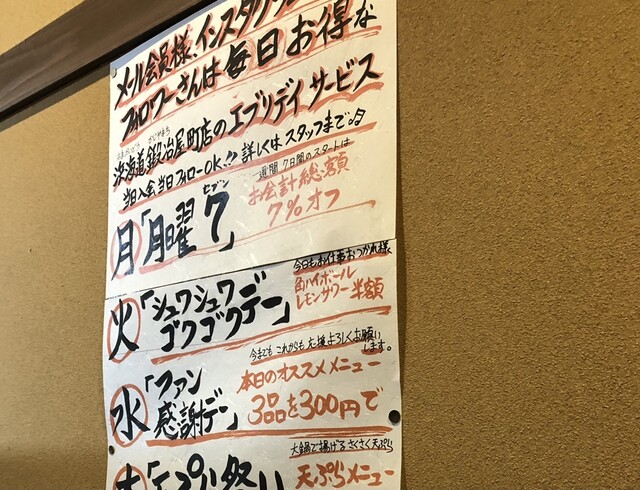 メール会員様、インスタグラ
フォロワーさんは毎日お得な
浜海道鍛冶屋町店のエブリデイサービス
当日入会当日フォローOK!!詳しくはスタッフまで♪
月「月曜7」
セブン
一週間 7日間のスタートは
お会計総額
7%オフ
火「シュワシュワデー
ゴクゴクデー」
今日もお仕事おつかれ様
角ハイボール
レモンサワー半額
水「ファン
感謝デー」
今までも これからも 応援よろしくお願い
します。
本日のオススメメニュー
3品を300円で
木「天ぷら祭り
大鍋で揚げるさくさく天ぷら
天ぷらメニュー